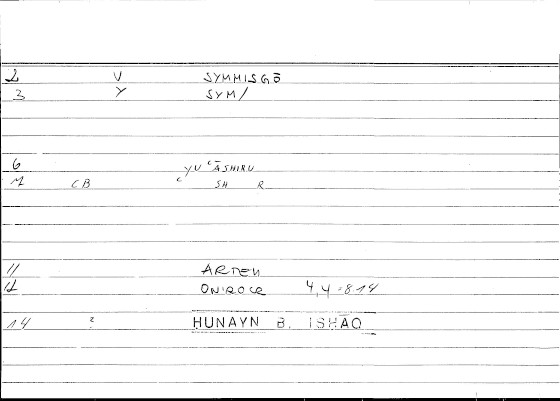 2 V SYMMISGŌ
3 Y SYM/
6 YUʿĀSHIRU
M CB ʿ SH R
11 ARTEM
12 ONIROCR 4,4 = 8.14
14 ? HUNAYN B. ISHĀQ